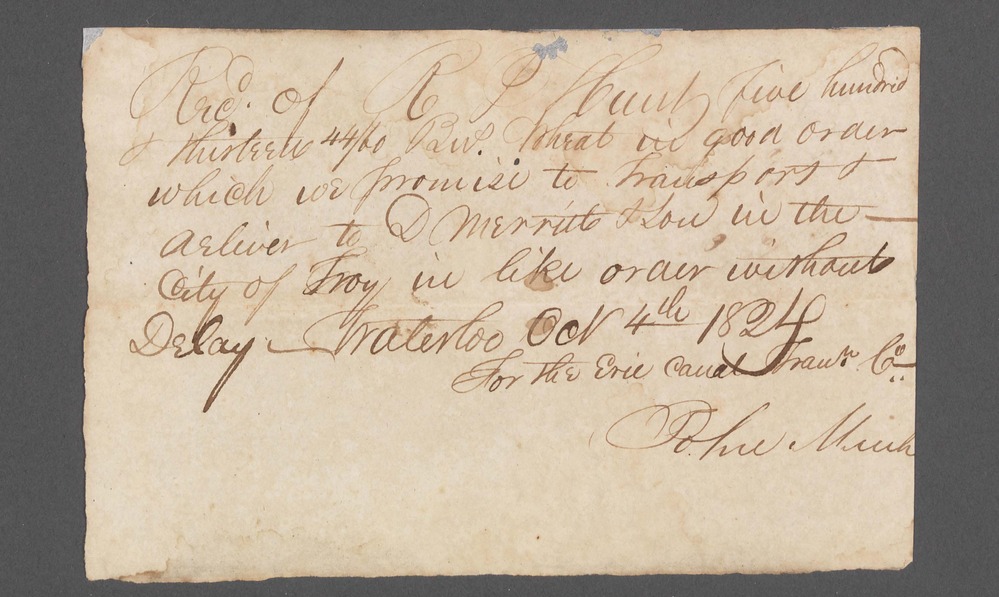 Recd. of R P Hunt five hundred
& thirteen 44/60 Bus. Wheat in good order
which we promise to transport &
deliver to D Merritt & Son in the
City of Troy in like order without
Delay. Waterloo Oct 4th 1824
For the Erie Canal Tran. Co.
John